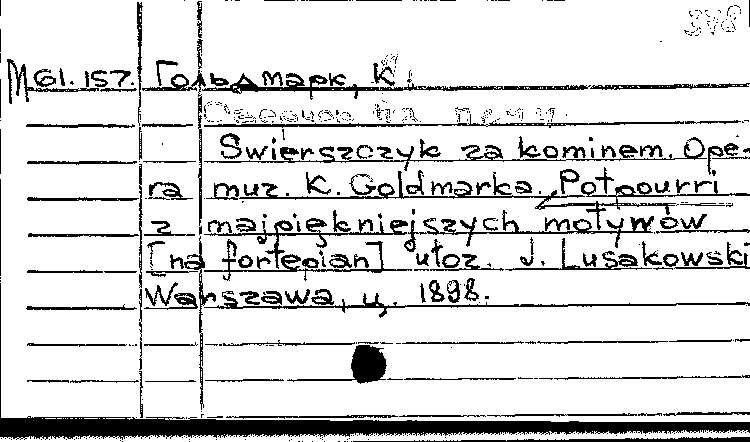 378
М 61.157. Гольдмарк, К.
Сверчок на печи.
Swierszczyk za kominem. Ope-
ra muz. K. Goldmarka. Potpourri
z najpiękniejszych motywów
[na fortepian] ułoz. J. Lusakowski
Warszawa, ц. 1898.